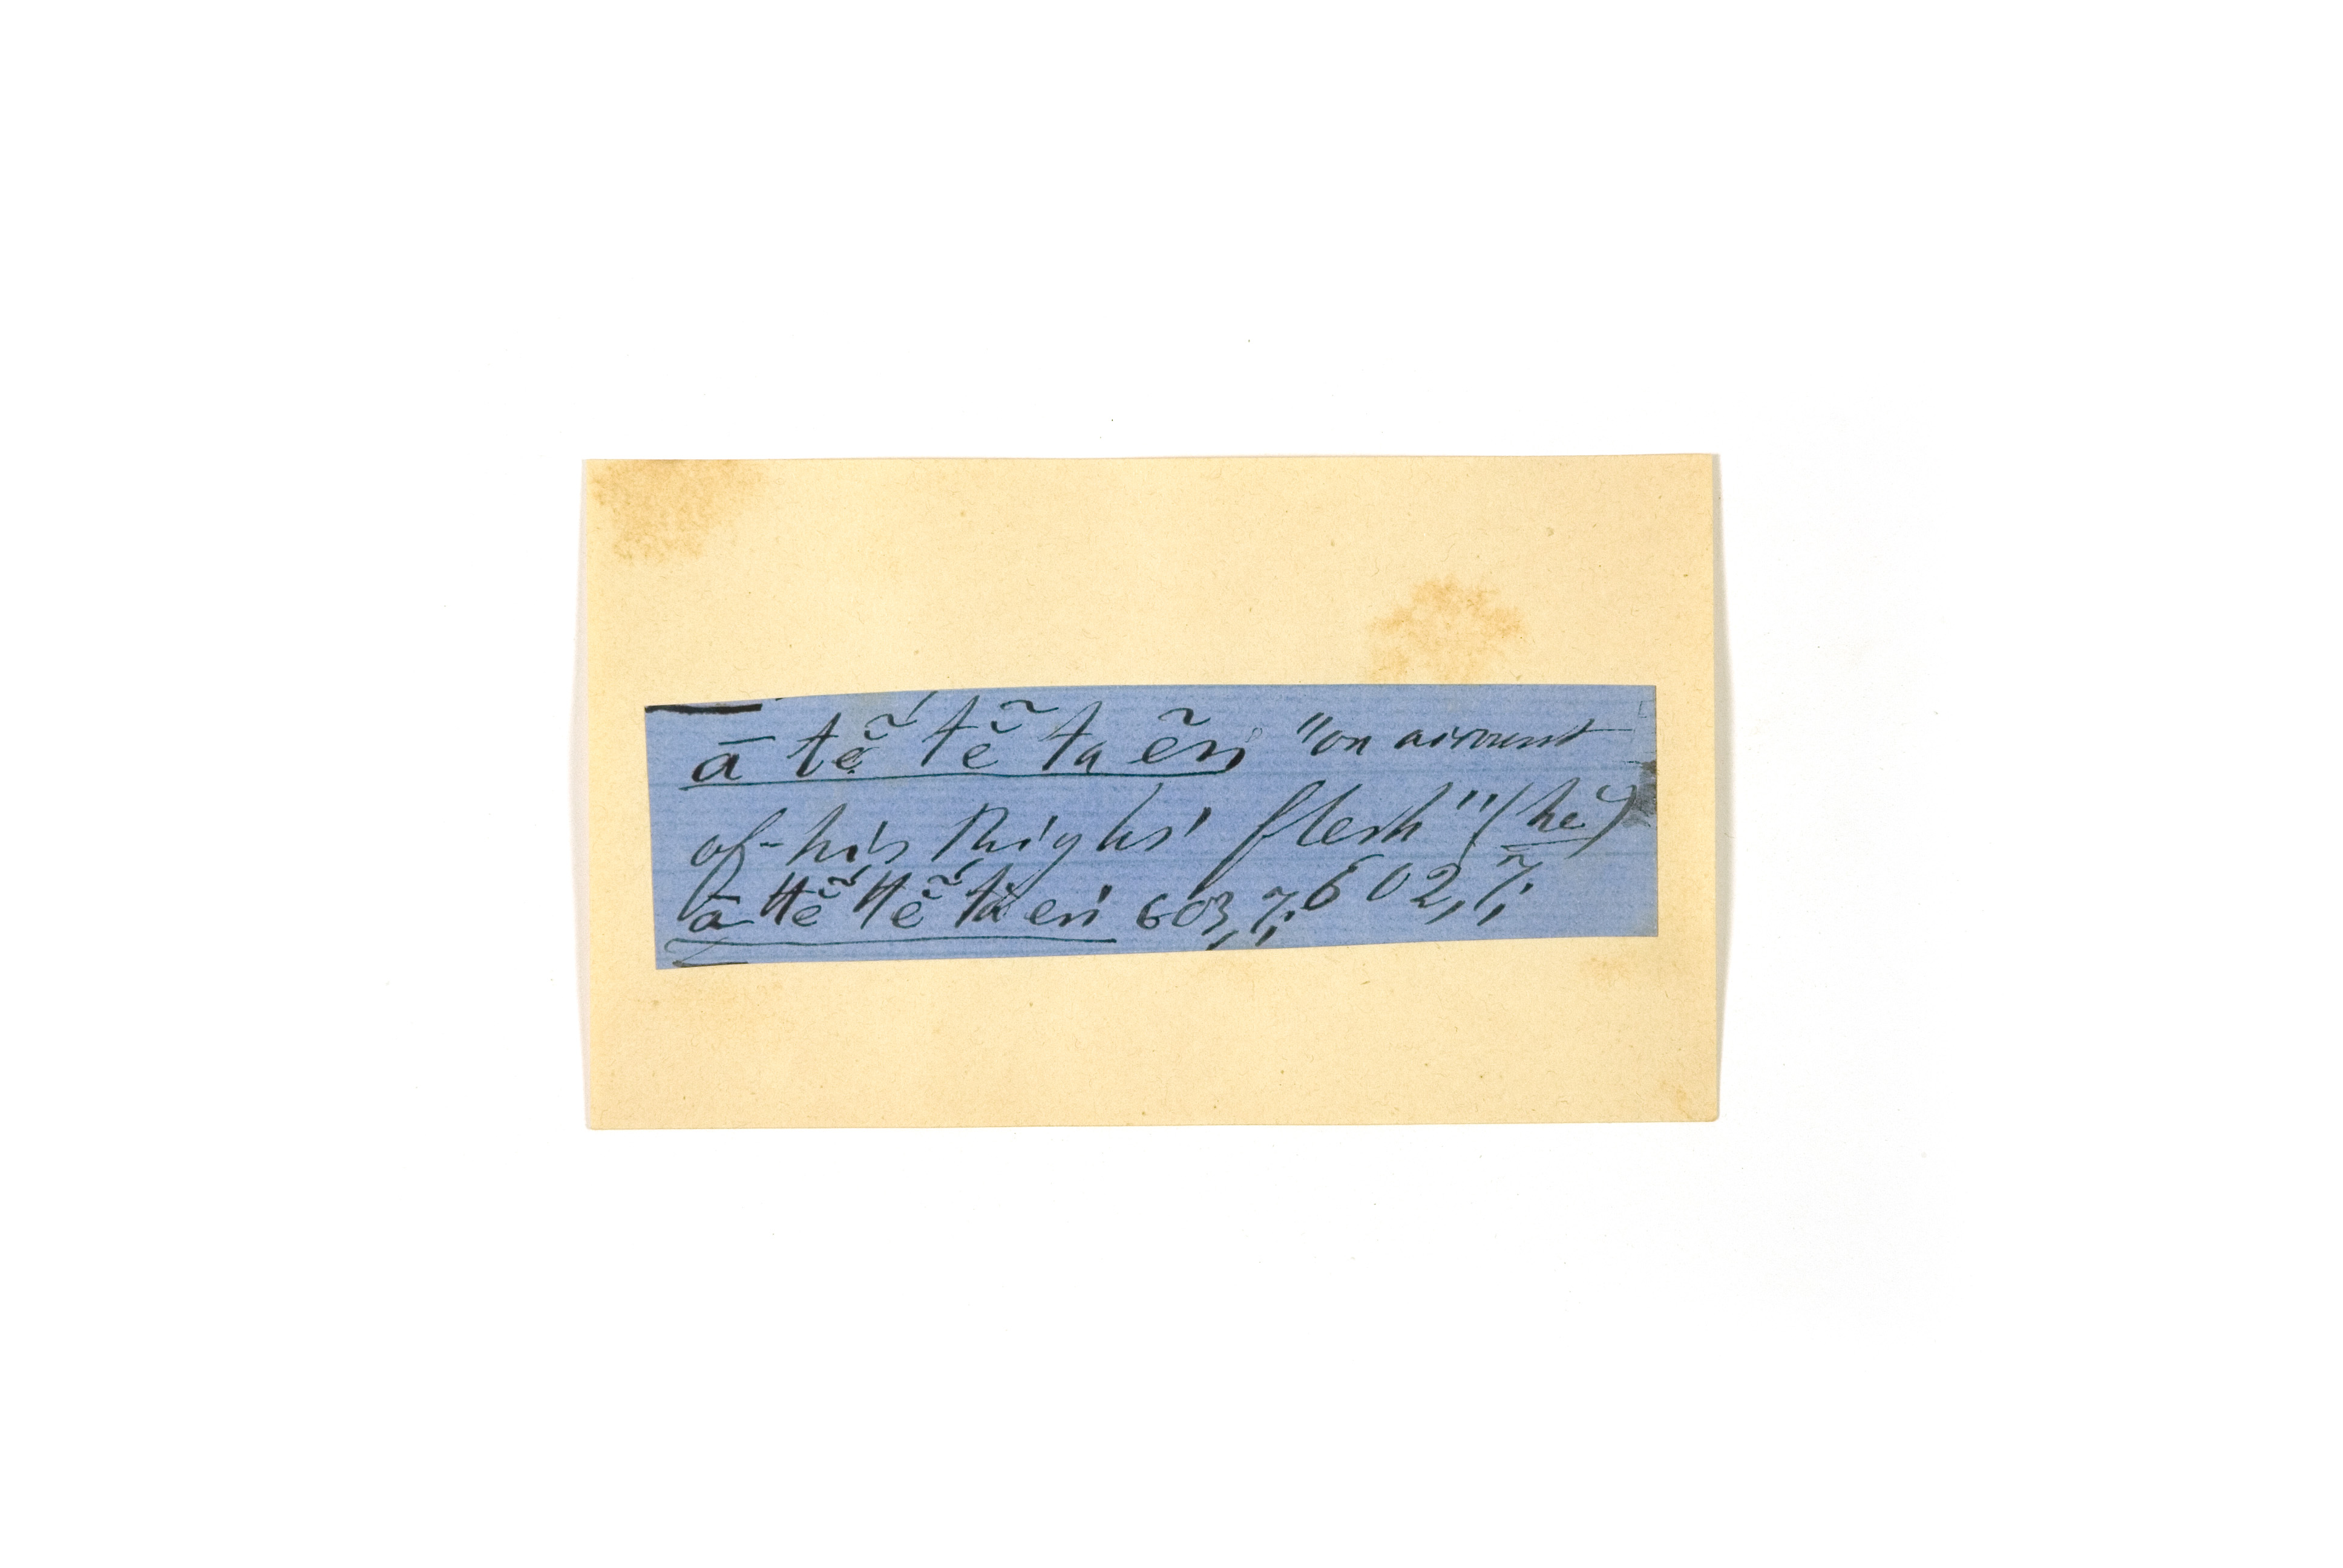 ā tẽ tẽ ta ẽn "on account
of his thighs' flesh" (hĕ)
ā ttẽ ttẽ ta en 603, 7, 602, 7,